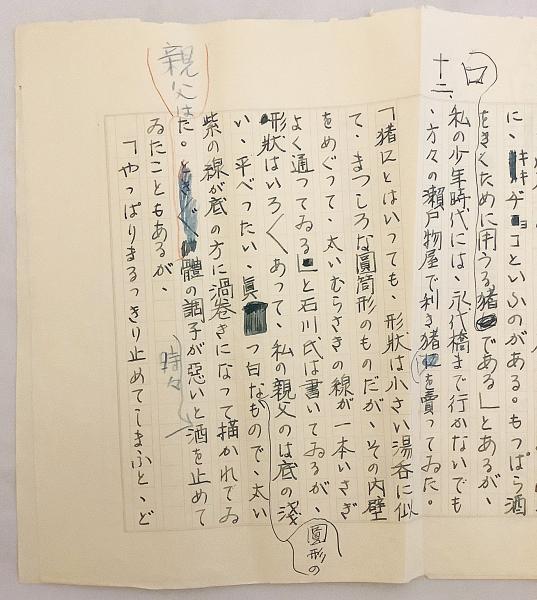 に、キキヂョコといふのがある。もつぱら酒
をきくために用うる猪口である」とあるが、
十二、
私の少年時代には、永代橋まで行かないでも
、方々の瀬戸物屋で利き猪口を賣つてゐた。
「猪口とはいつても、形狀は小さい湯呑に似
て、まつしろな圓筒形のものだが、その内壁
をめぐつて、太いむらさきの線が一本いさぎ
よく通つてゐる」と石川氏は書いてゐるが、
形狀はいろ〱あつて、私の親父のは底の淺
い、平べつたい、眞つ白なもので、太い
圓形の
紫の線が底の方に渦巻きになつて描かれてゐ
た。體の調子が惡いと酒を止めて
親父は
時々
ゐたこともあるが、
「やつぱりまるつきり止めてしまふと、ど